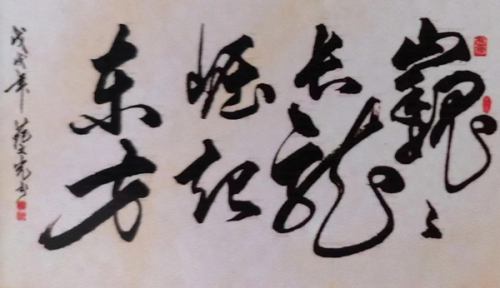 巍々
长龙
崛起
东方
戊戌年